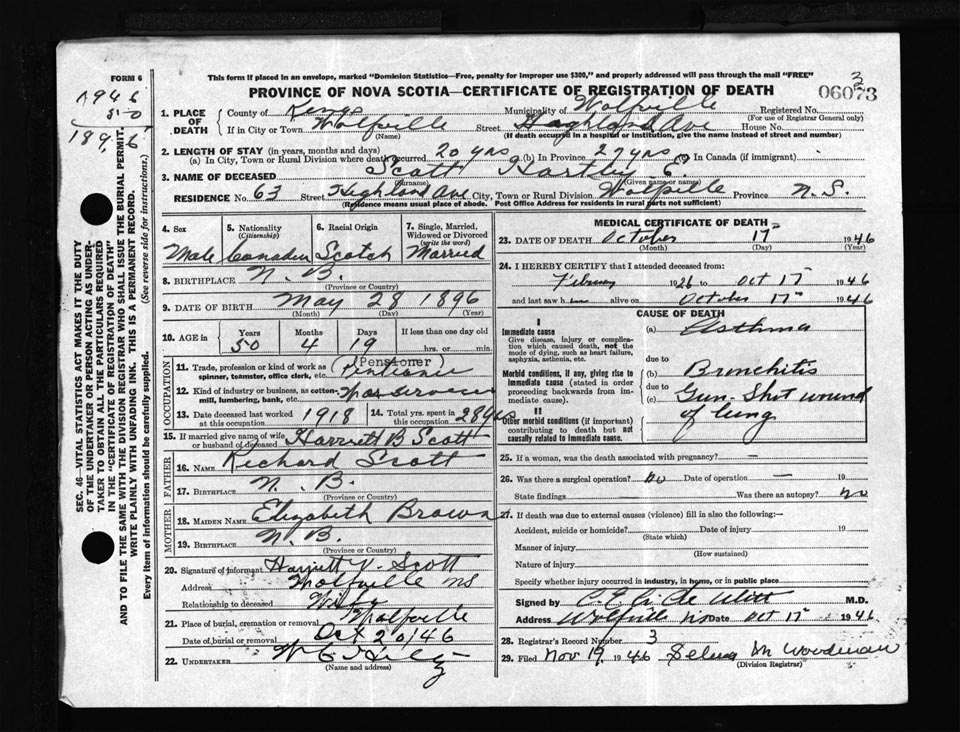 FORM 6
This form if placed in an envelope, marked "Dominion Statistics—Free, penalty for improper use $300," and properly addressed will pass through the mail "FREE"
PROVINCE OF NOVA SCOTIA—CERTIFICATE OF REGISTRATION OF DEATH
3
06073
1946
50
1896
1. PLACE OF DEATH
County of Kings Municipality of Wolfville Registered No.
(For use of Registrar General only)
If in City or Town Wolfville Street Highland Ave House No.
(Name) (If death occurred in a hospital or institution, give the name instead of street and number)
2. LENGTH OF STAY (in years, months and days)
(a) In City, Town or Rural Division where death occurred 20 yrs (b) In Province 27 yrs (c) In Canada (if immigrant)
3. NAME OF DECEASED Scott Hartley E.
(Surname) (Given name or names)
RESIDENCE No. 63 Street Highland Ave City, Town or Rural Division Wolfville Province N.S.
(Residence means usual place of abode. Post Office Address for residents in rural parts not sufficient)
4. Sex
Male
5. Nationality
(Citizenship)
Canadian
6. Racial Origin
Scotch
7. Single, Married, Widowed or Divorced
(write the word)
Married
8. BIRTHPLACE N. B.
(Province or Country)
9. DATE OF BIRTH May 28 1896
(Month) (Day) (Year)
10. AGE in
Years Months Days If less than one day old
50 4 19 hrs. or min.
OCCUPATION
11. Trade, profession or kind of work as spinner, teamster, office clerk, etc. Pensioner
(Pensioner)
12. Kind of industry or business, as cotton-mill, lumbering, bank, etc. War Services
13. Date deceased last worked at this occupation 1918
14. Total yrs. spent in this occupation 28 yrs
15. If married give name of wife or husband of deceased Harriett B Scott
FATHER
16. NAME Richard Scott
17. BIRTHPLACE N. B.
(Province or Country)
MOTHER
18. MAIDEN NAME Elizabeth Brown
19. BIRTHPLACE N. B.
(Province or Country)
20. Signature of informant Harriett V. Scott
Address Wolfville NS
Relationship to deceased Wife
21. Place of burial, cremation or removal Wolfville
Date of burial or removal Oct 20/46
22. UNDERTAKER
(Name and address)
MEDICAL CERTIFICATE OF DEATH
23. DATE OF DEATH October 17th 1946
(Month) (Day) (Year)
24. I HEREBY CERTIFY that I attended deceased from:
1926 to Oct 17th 1946
and last saw him alive on October 17th 1946
CAUSE OF DEATH
I
Immediate cause
Give disease, injury or complication which caused death, not the mode of dying, such as heart failure, asphyxia, asthenia, etc.
(a) Asthma
due to
Morbid conditions, if any, giving rise to immediate cause (stated in order proceeding backwards from immediate cause).
(b) Bronchitis
due to
(c) Gun-Shot wound of lung
II
Other morbid conditions (if important) contributing to death but not causally related to immediate cause.
25. If a woman, was the death associated with pregnancy? —
26. Was there a surgical operation? no Date of operation — 19
State findings Was there an autopsy? no
27. If death was due to external causes (violence) fill in also the following:—
Accident, suicide or homicide? Date of injury 19
(State which)
Manner of injury
(How sustained)
Nature of injury
Specify whether injury occurred in industry, in home, or in public place
Signed by De Witt M.D.
Address Wolfville NS Date Oct 17th 1946
28. Registrar's Record Number 3
29. Filed Nov 19 1946 Selma M Woodman
(Division Registrar)
SEC. 46—VITAL STATISTICS ACT MAKES IT THE DUTY
OF THE UNDERTAKER OR PERSON ACTING AS UNDER-
TAKER TO OBTAIN ALL THE PARTICULARS REQUIRED
IN THE "CERTIFICATE OF REGISTRATION OF DEATH"
AND TO FILE THE SAME WITH THE DIVISION REGISTRAR WHO SHALL ISSUE THE BURIAL PERMIT.
WRITE PLAINLY WITH UNFADING INK. THIS IS A PERMANENT RECORD.
Every item of information should be carefully supplied. (See reverse side for instructions.)